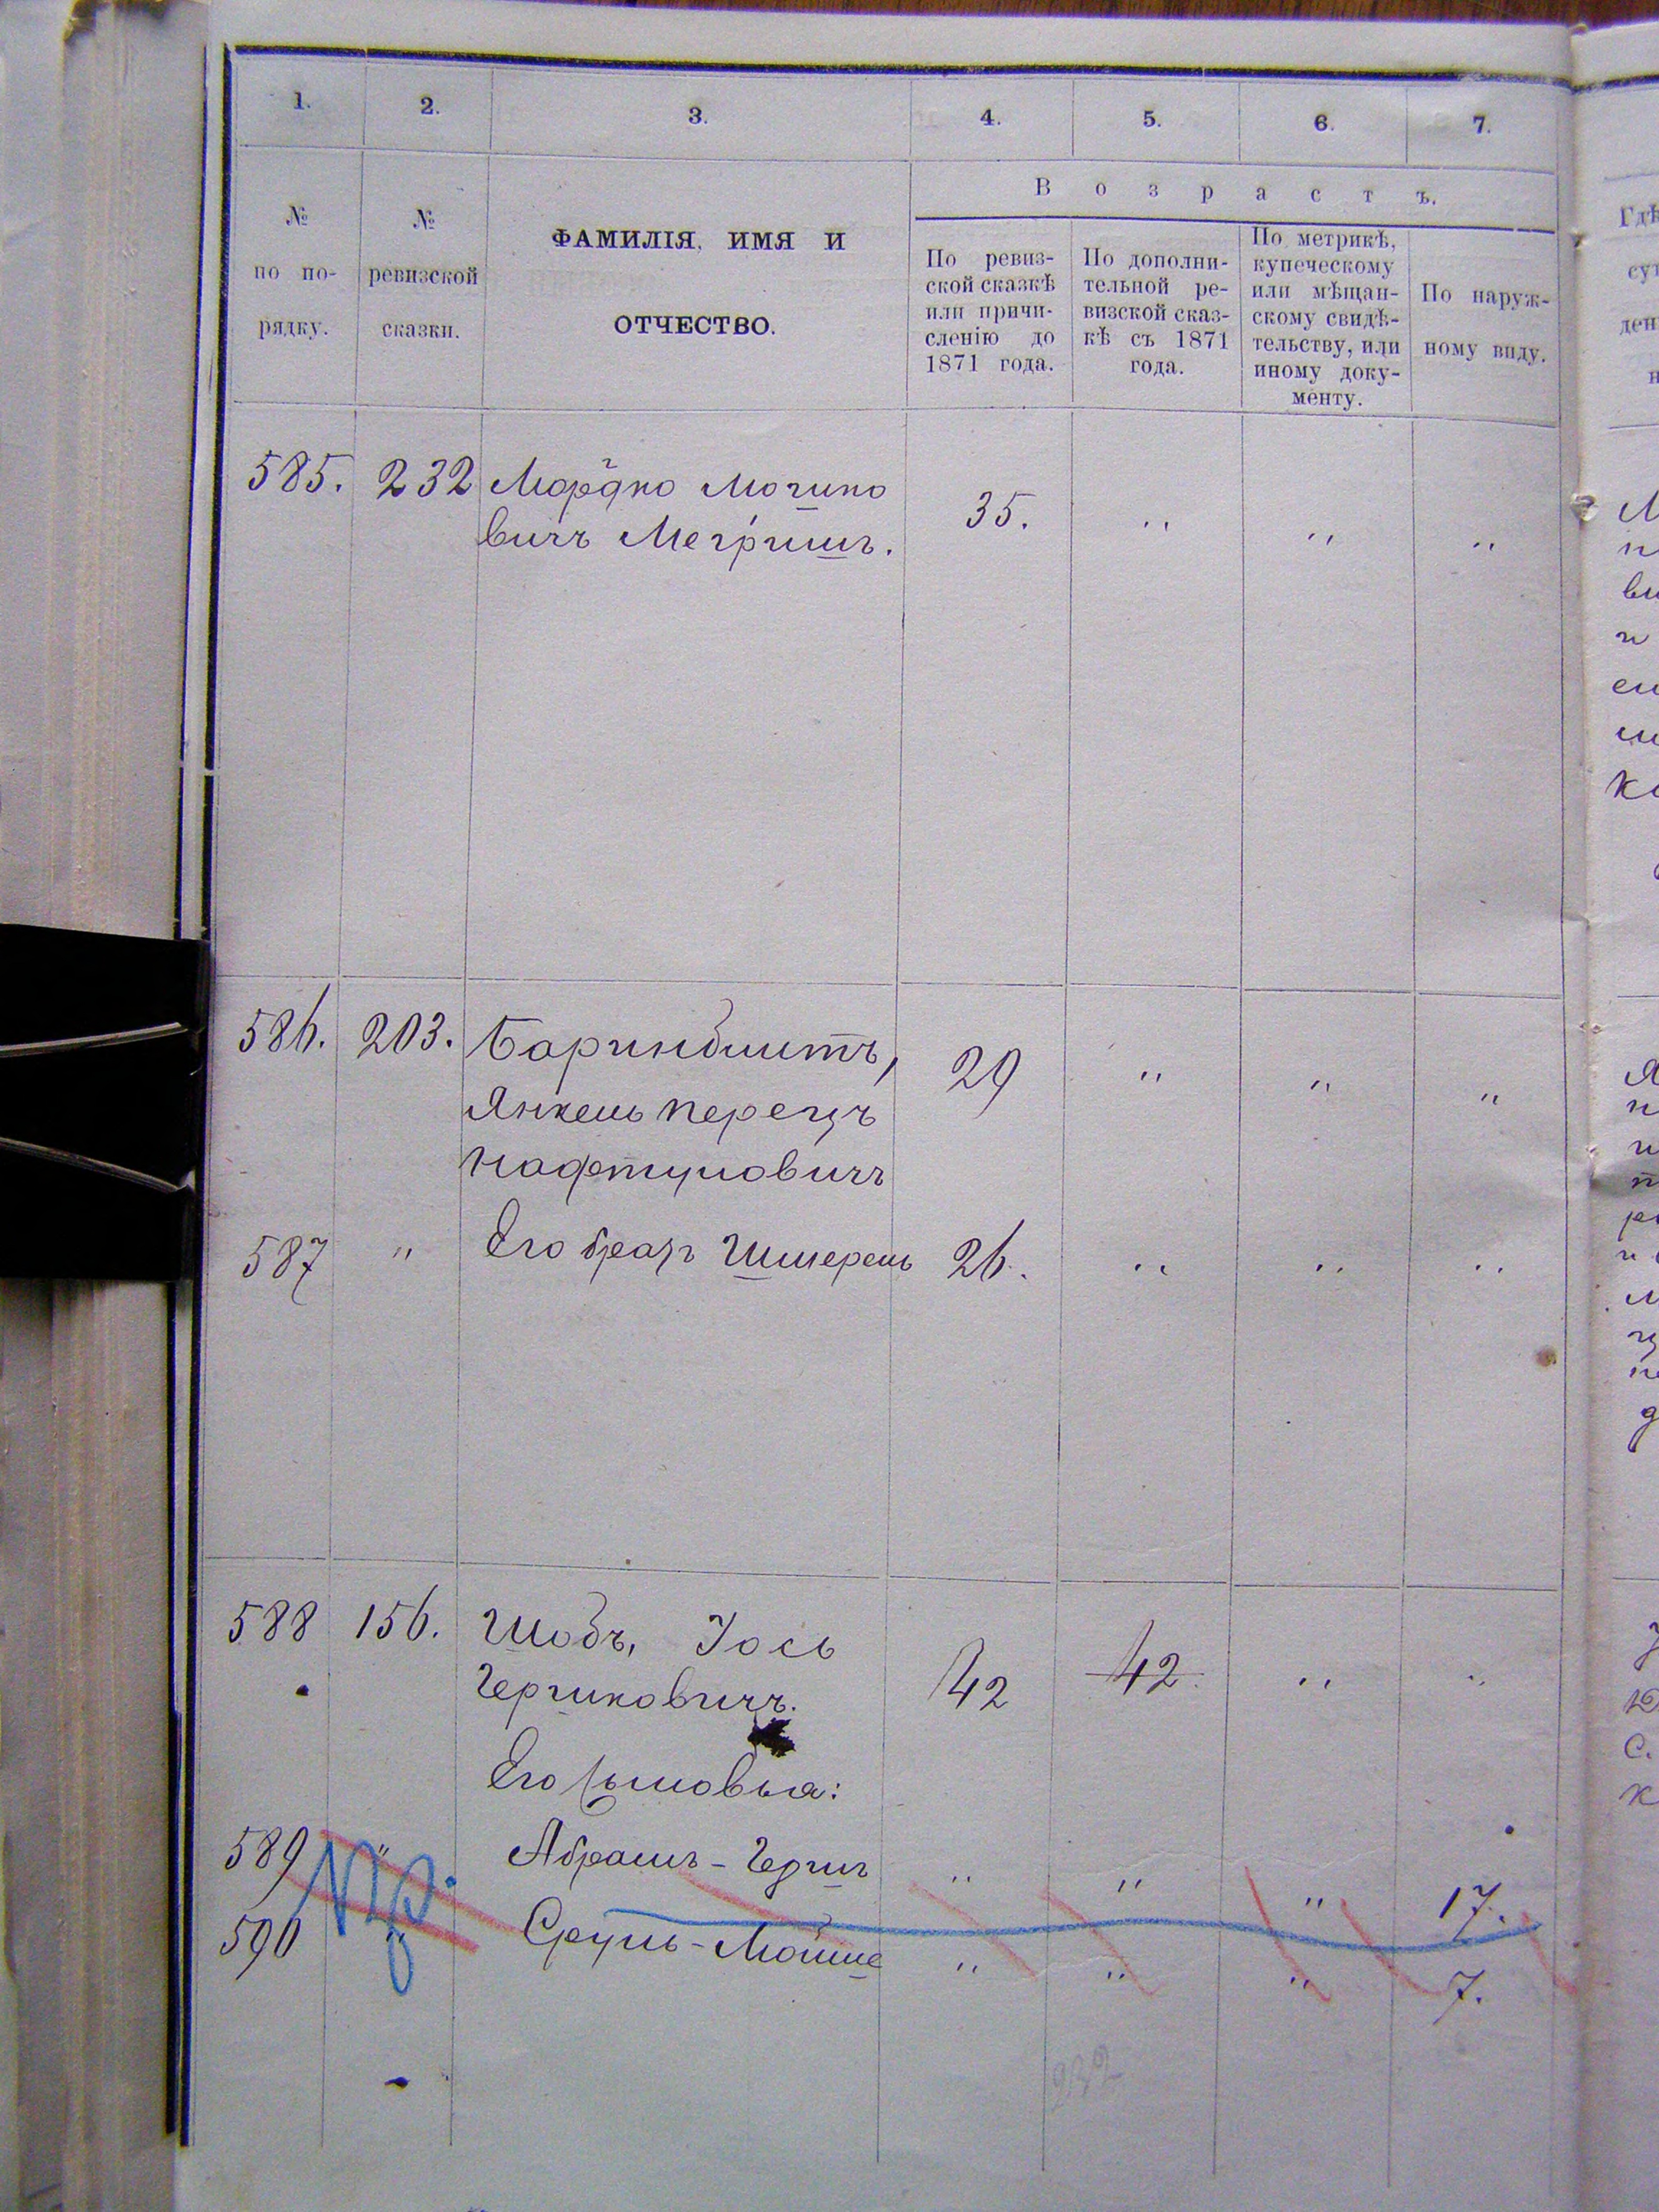 1. 2. 3. 4. 5. 6. 7.
В о з р а с т ъ.
№
по по-
рядку.
№
ревизской
сказки.
ФАМИЛІЯ, ИМЯ И
ОТЧЕСТВО.
По ревиз-
ской сказкѣ
или причи-
сленію до
1871 года.
По дополни-
тельной ре-
визской сказ-
кѣ съ 1871
года.
По метрикѣ,
купеческому
или мѣщан-
скому свидѣ-
тельству, или
иному доку-
менту.
По наруж-
ному виду.
585. 232 Мордко 35. " " "
вичъ
586. 203. 29 " " "
Янкель Перецъ
Нафтуловичъ
587 " Его братъ Шмерель 26. " " "
588 156. Шобъ, Іось 42 42 " "
Гершковичъ.
Его сыновья:
589 " Абрамъ-Гершъ " " " 17.
Пр.
590 " Сруль-Мойше " " " 7.
232